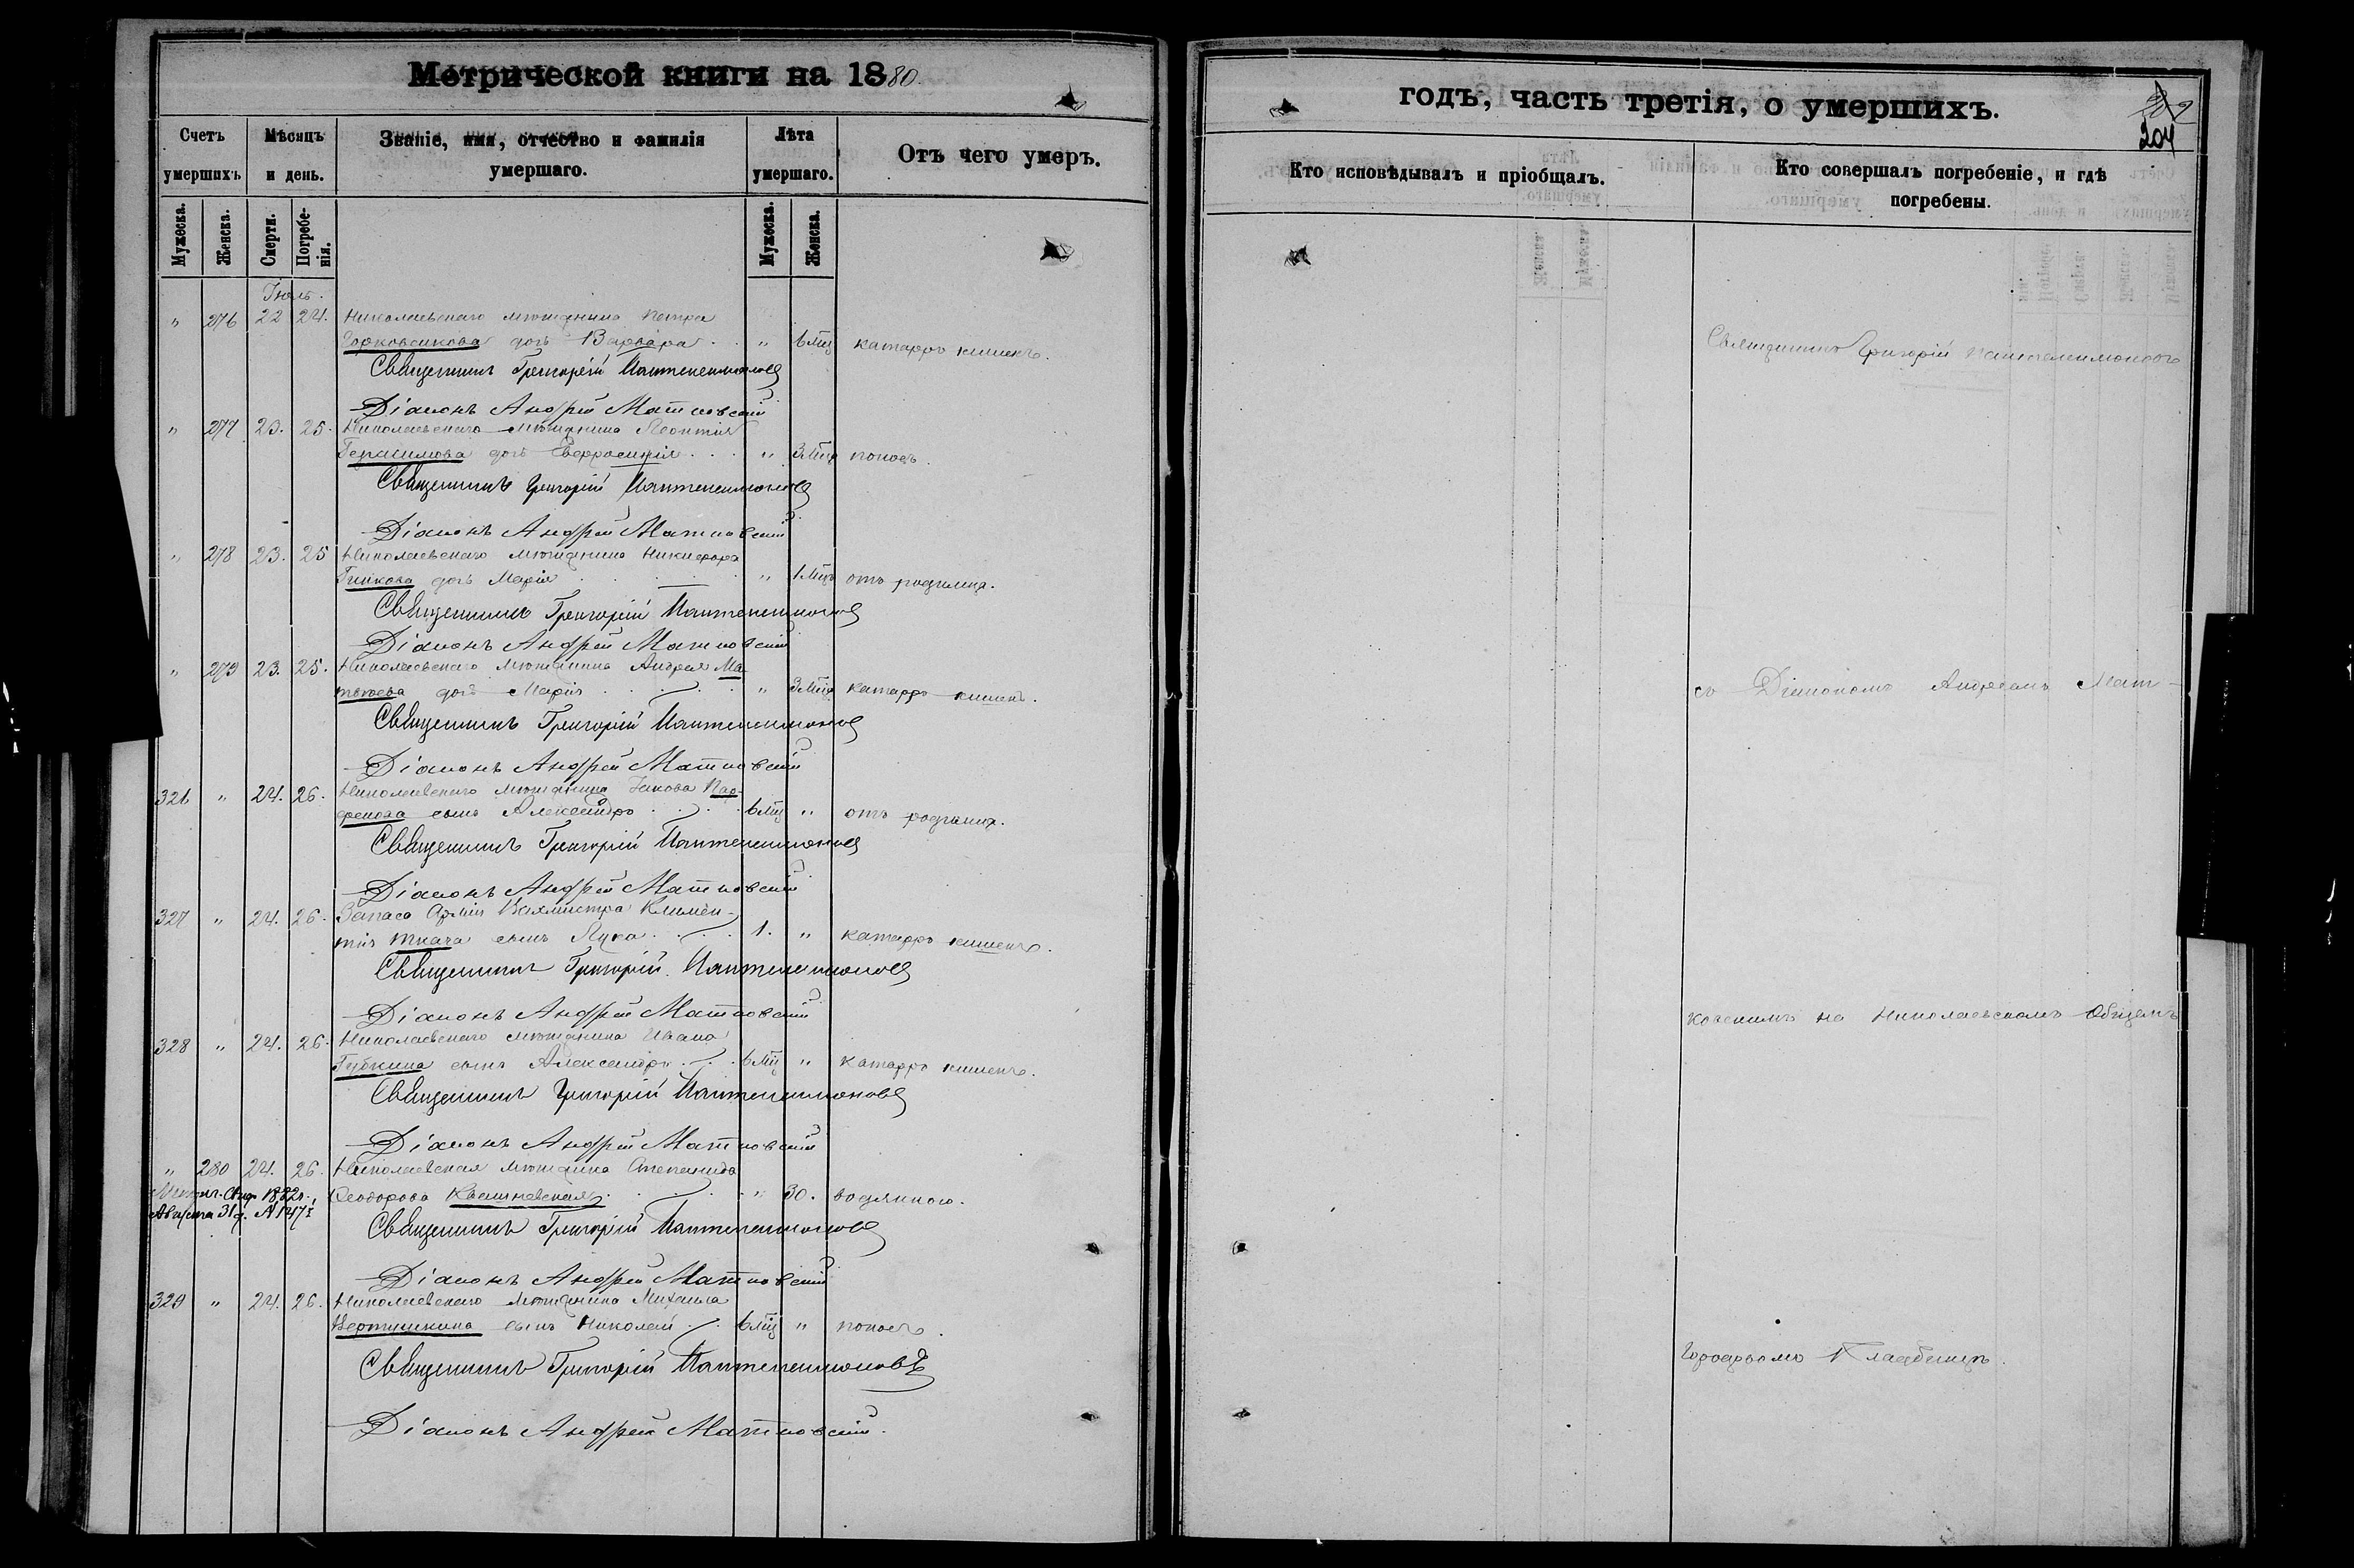 Метрической книги на 1880.
Счетъ умершихъ
Мѣсяцъ и день.
Званіе, имя, отчество и фамилія умершаго.
Лѣта умершаго.
Отъ чего умеръ.
Мужеска.
Женска.
Смерти.
Погребенія.
Мужеска.
Женска.
Іюль.
" 276 22 24. Николаевскаго мѣщанина Петра
дочь Варвара . . " 6 мц катарръ кишекъ.
Священникъ Григорій Пантелеимоновъ
Діаконъ Андрей Матковскій
" 277 23. 25. Николаевскаго мѣщанина Леонтія
Герасимова дочь Евфросинія . . . " 3 мца поносъ.
Священникъ Григорій Пантелеимоновъ
Діаконъ Андрей Матковскій
" 278 23. 25 Николаевскаго мѣщанина Никифора
дочь Марія . . . . . " 1 мцъ отъ родимца.
Священникъ Григорій Пантелеимоновъ
Діаконъ Андрей Матковскій
" 279 23. 25. Николаевскаго мѣщанина Андрея Ма-
твѣева дочь Марія . . . . " 3 мца катарръ кишекъ.
Священникъ Григорій Пантелеимоновъ
Діаконъ Андрей Матковскій
326 " 24. 26. Николаевскаго мѣщанина Іакова Пар-
фенова сынъ Александръ . . . 6 мц " отъ родимца.
Священникъ Григорій Пантелеимоновъ
Діаконъ Андрей Матковскій
327 " 24. 26. Запаса Арміи Вахмистра Климен-
тія Ткача сынъ Лука . . . . 1. " катарръ кишекъ.
Священникъ Григорій Пантелеимоновъ
Діаконъ Андрей Матковскій
328 " 24. 26. Николаевскаго мѣщанина Ивана
Губкина сынъ Александръ . . . 6 мц " катарръ кишекъ.
Священникъ Григорій Пантелеимоновъ
Діаконъ Андрей Матковскій
" 280 24. 26. Николаевская мѣщанка Степанида
Ѳеодорова Квашневская . . . . . " 30. водянкою.
Августа 31 д. №
Священникъ Григорій Пантелеимоновъ
Діаконъ Андрей Матковскій
329 " 24. 26. Николаевскаго мѣщанина Михаила
Вертушкина сынъ Николай . . 6 мц " поносъ.
Священникъ Григорій Пантелеимоновъ
Діаконъ Андрей Матковскій.
годъ, часть третія, о умершихъ.
204
Кто исповѣдывалъ и пріобщалъ.
Кто совершалъ погребеніе, и гдѣ погребены.
Священникъ Григорій Пантелеимоновъ
съ Діакономъ Андреемъ Мат-
ковскимъ на Николаевскомъ Общемъ
Городскомъ Кладбищѣ.